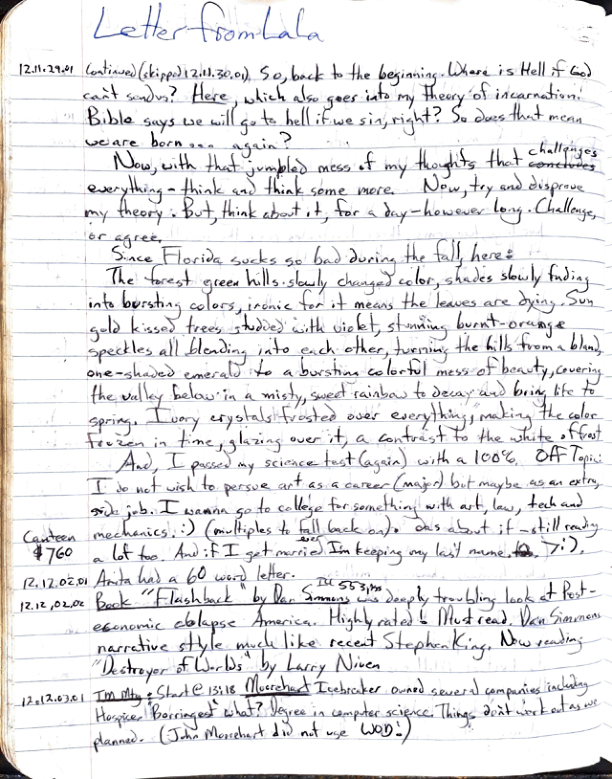 Letter from Lala
12.11.29.01 Continued (skipped 12.11.30.01). So, back to the beginning. Where is Hell if God
can't send us? Here, which also goes into my theory of incarnation.
Bible says we will go to hell if we sin, right? So does that mean
we are born ... again?
Now, with that jumbled mess of my thoughts that challenges
everything - think and think some more. Now, try and disprove
my theory. But, think about it, for a day - however long. Challenge,
or agree.
Since Florida sucks so bad during the fall, here:
The forest green hills slowly changed color, shades slowly fading
into bursting colors, ironic for it means the leaves are dying. Sun
gold kissed trees studded with violet, stunning burnt-orange
speckles all blending into each other, turning the hills from a bland,
one-shaded emerald to a bursting colorful mess of beauty, covering
the valley below in a misty, sweet rainbow to decay and bring life to
spring. Ivory crystals frosted over everything, making the color
frozen in time, glazing over it, a contrast to the white of frost
And, I passed my science test (again) with a 100%. Off Topic:
I do not wish to persue art as a career (major) but maybe as an extra,
side job. I wanna go to college for something with art, law, tech and
mechanics. :) (multiples to fall back on). about it - still reading
Canteen $760 a lot too. And if I ever get married I'm keeping my last name. >:).
12.12.02.01 Anita had a 60 word letter.
12.12.02.02 Book "Flashback" by Dan Simmons 553 was deeply troubling look at Post-
economic colapse America. Highly rated! Must read. Dan Simmons
narrative style much like recent Stephen King. Now reading
"Destroyer of Worlds" by Larry Niven
12.12.03.01 Im Mtg: Start @ 13:18 Moorehart Icebreaker owned several companies including
Hospice "Borringest" what? Degree in computer science. Things don't work out as we
planned. (John Moorehart did not use WOD!)